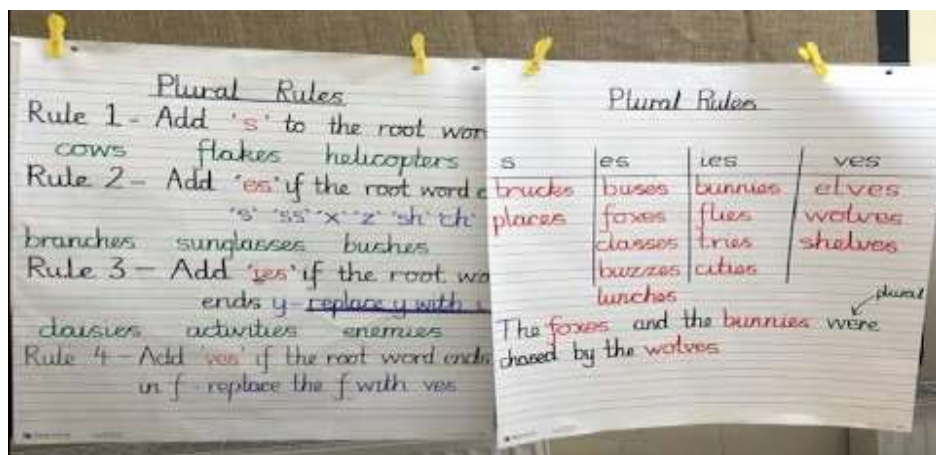 Plural Rules
Rule 1 - Add 's' to the root wor
cows flakes helicopters
Rule 2 - Add 'es' if the root word e
's' 'ss' 'x' 'z' 'sh' 'ch'
branches sunglasses bushes
Rule 3 - Add 'ies' if the root wo
ends y - replace y with i
daisies activities enemies
Rule 4 - Add 'ves' if the root word ends
in f - replace the f with ves
Plural Rules
s es ies ves
trucks buses bunnies elves
places foxes flies wolves
classes tries shelves
buzzes cities
lunches
plural
The foxes and the bunnies were
chased by the wolves